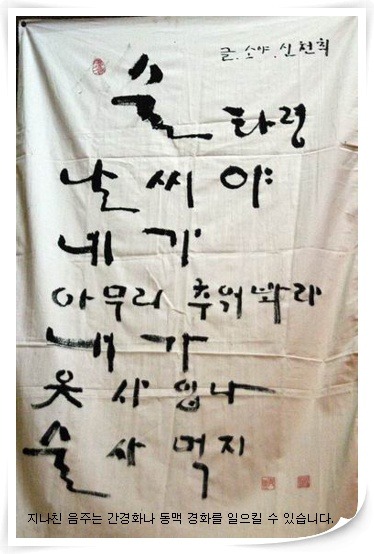 글. 소야. 신천희
술 타령
날씨야
네가
아무리 추워봐라
내가
옷 사 입나
술 사 먹지
지나친 음주는 간경화나 동맥 경화를 일으킬 수 있습니다.